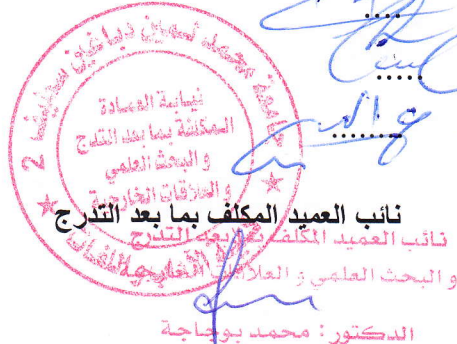 جامعة محمد لمين دباغين سطيف 2
نيابة العمادة
المكلفة بما بعد التدرج
و البحث العلمي
و العلاقات الخارجية
نائب العميد المكلف بما بعد التدرج
نائب العميد المكلف بما بعد التدرج
و البحث العلمي و العلاقات الخارجية
الدكتور : محمد بوجاجة